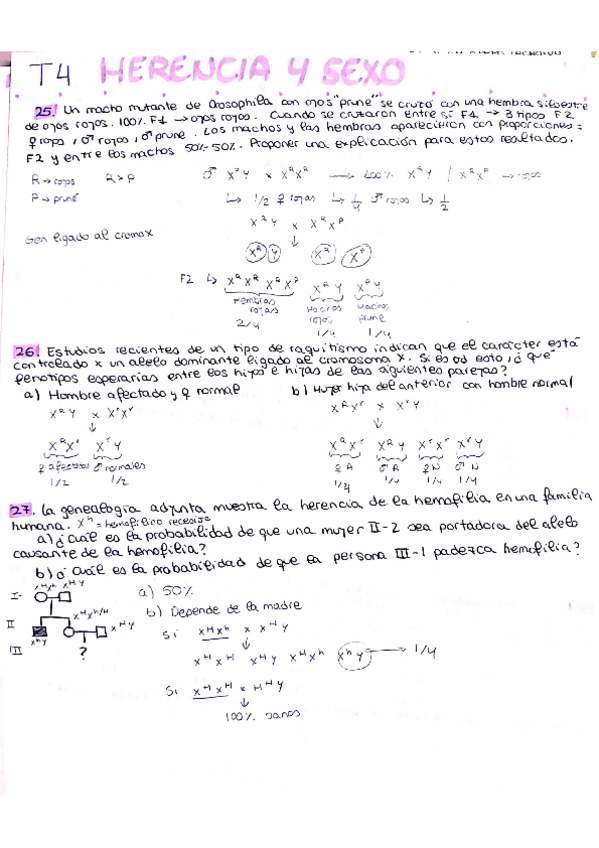 T4 HERENCIA Y SEXO
25. Un macho mutante de Drosophila con ojos "prune" se cruzó con una hembra silvestre
de ojos rojos. 100% F1 → ojos rojos. Cuando se cruzaron entre sí F1 → 3 tipos F2
♀ rojos, ♂ rojos, ♂ prune. Los machos y las hembras aparecieron con proporciones =
F2 y entre los machos 50%-50%. Proponer una explicación para estos resultados.
R → rojos R > P ♂ X^P Y x X^R X^R → 100% X^R Y / X^R X^P → rojos
P → prune ↳ 1/2 ♀ rojas ↳ 1/4 ♂ rojos ↳ 1/2
X^R Y x X^R X^P
Gen ligado al cromo X ↓
X^R Y X^R X^P
F2 ↳ X^R X^R X^R X^P X^R Y X^P Y
Hembras rojas Machos rojos Machos prune
2/4 1/4 1/4
26. Estudios recientes de un tipo de raquitismo indican que el carácter está
controlado x un alelo dominante ligado al cromosoma X. Si es así esto, ¿qué
fenotipos esperarías entre los hijos e hijas de las siguientes parejas?
a) Hombre afectado y ♀ normal b) Mujer hija del anterior con hombre normal
X^R Y x X^r X^r X^R X^r x X^r Y
↓ ↓
X^R X^r X^r Y X^R X^r X^R Y X^r X^r X^r Y
♀ afectadas ♂ normales ♀ A ♂ A ♀ N ♂ N
1/2 1/2 1/4 1/4 1/4 1/4
27. La genealogía adjunta muestra la herencia de la hemofilia en una familia
humana. X^h = hemofílico recesivo
a) ¿Cuál es la probabilidad de que una mujer II-2 sea portadora del alelo
causante de la hemofilia?
b) ¿Cuál es la probabilidad de que la persona III-1 padezca hemofilia?
X^H X^h X^H Y a) 50%
I- b) Depende de la madre
X^H X^h/H Si X^H X^h x X^H Y
II X^H Y ↓
X^h Y X^H X^H X^H Y X^H X^h X^h Y → 1/4
III ?
Si X^H X^H x H^H Y
↓
100% sanos